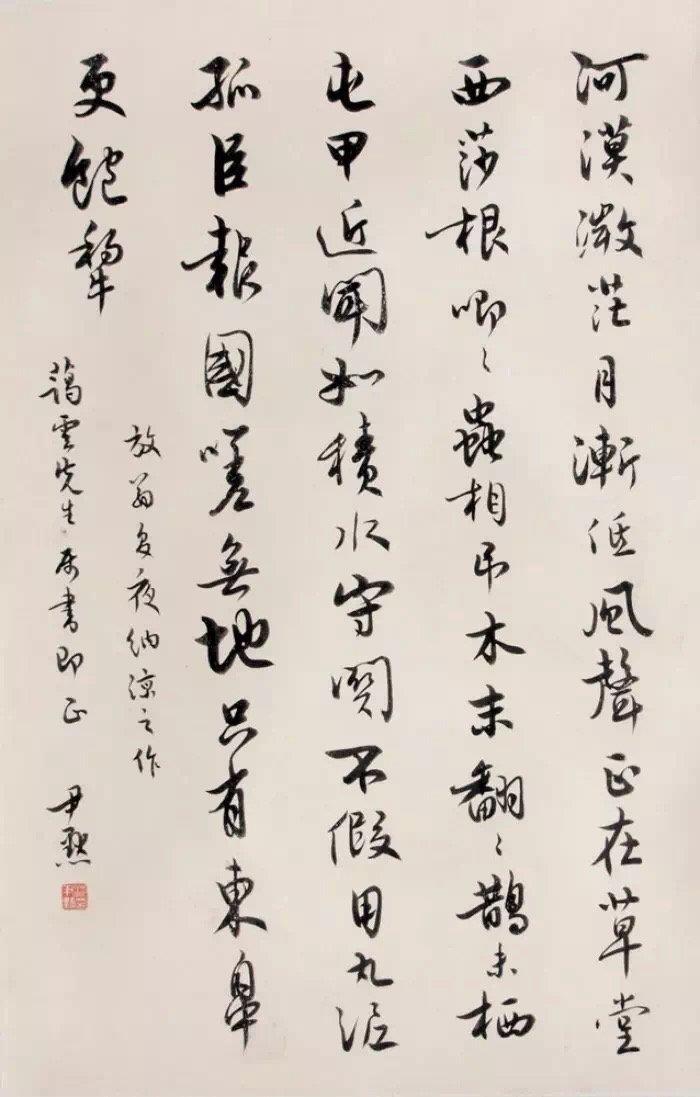 河漢微茫月漸低風聲正在草堂
西莎根唧〻蟲相吊木末翻〻鵲未栖
屯甲近聞如積水守関不假用丸泥
孤臣報國嗟無地只有東皋
更飽犂
放翁夏夜納涼之作
藹雲先生属書即正 尹默